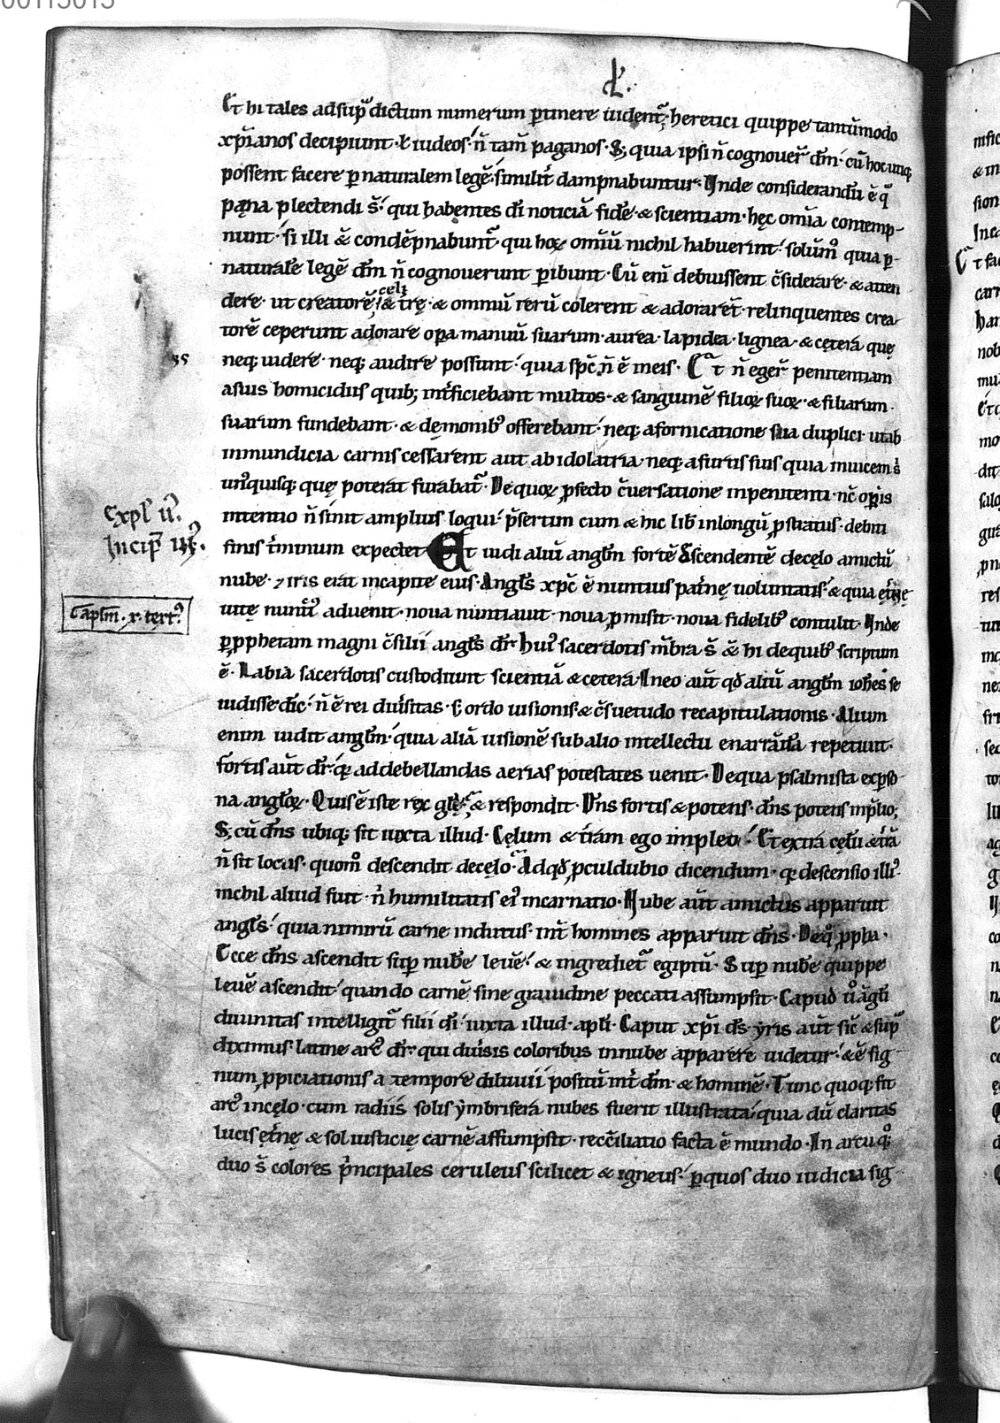 00113013
Et hi tales ad sup̄dictum numerum ꝑtinere uident᷑. heretici quippe tantūmodo
xp̄ianos decipiunt. ł iudeos. n̄ tam̄ paganos. S; quia ipsi n̄ cognouer̄ dm̄. cū hoc utiq;
possent facere ꝑ naturalem legē. similit̄ dampnabuntur. Vnde considerandū ē qᵃ
pęna plectendi s̄. qui habentes dī noticiā fidē & scientiam. hęc om̄ia contemp-
nunt. si illi & condēpnabunt᷑. qui hoꝝ om̄iū nichil habuerint. solūmᵒ quia ꝑ-
naturalē legē dm̄ n̄ cognouerunt ꝑibunt. Cū eni debuissent c̄siderare. & atten
dere. ut creatorē celi & t̄rę. & omniū rerū colerent & adorarent. relinquentes crea
torē ceperunt adorare oꝑa manuū suarum. aurea. lapidea. lignea. & cętera quę
neq; uidere. neq; audire possunt. quia sp̄c n̄ ē in eis. Et n̄ eger̄ penitentiam
a suis homicidiis quib; int̄ficiebant multos. & sanguinē filioꝝ suoꝝ. & filiarum.
suarum fundebant. & demonibꝰ offerebant. neq; a fornicatione sua duplici. ut ab
inmundicia carnis cessarent aut ab idolatria. neq; a furtis suis quia inuicem s̄
un̄quisq; que poterat furabat᷑. De quoꝝ ꝓfecto c̄uersatione inpenitenti. nc̄ oꝑis
intentio n̄ sinit amplius loqui. p̄sertim cum & hic lib̄ in longū ꝓstratus. debiti
finis t̄minum expectet. Et uidi aliū angl̄m fortē descendentē de cęlo amictū
nube. ⁊ iris erat in capite eius. Angl̄s xp̄c ē nuntius patr̄nę uoluntatis. & quia ęt̄nę
uitę nuntiꝰ aduenit. noua nuntiauit. noua ꝓmisit. noua fidelibꝰ contulit. Vnde
ꝑ ꝓphetam magni c̄silii angl̄s dr̄. huiꝰ sacerdotis m̄bra s̄ & hi de quibꝰ scriptum
ē. Labia sacerdotis custodiunt scientiā & cetera. In eo aūt qđ aliū angl̄m ioh̄es se
uidisse dīc. n̄ ē rei diu̓sitas. s; ordo uisionis & c̄suetudo recapitulationis. Alium
enim uidit angl̄m. quia aliā uisionē sub alio intellectu enarrāda repetiuit.
fortis aūt dr̄. quia ad debellandas aerias potestates uenit. De qua psalmista ex ꝑso-
na angl̄oꝝ. Quis ē iste rex glę. & respondit. Dn̄s fortis & potens. dn̄s potens in p̄lio.
S; cū dn̄s ubiq; sit iuxta illud. Cęlum & t̄ram ego impleo. Et extra cęlū & t̄rā
n̄ sit locus. quomᵒ descendit de cęlo. Ad qđ ꝓculdubio dicendum. qđ descensio illiꝰ
nichil aliud fuit. n̄ humilitatis eiꝰ incarnatio. Nube aūt amictus apparuit
angl̄s. quia nimirū carne indutus. int̄ homines apparuit dn̄s. De qᵒ ꝓpha.
Ecce dn̄s ascendit suꝑ nubē leuē. & ingrediet᷑ egiptū. Suꝑ nubē quippe
leuē ascendit. quando carnē sine grauidine peccati assumpsit. Caput ū angl̄i
diuinitas intelligit᷑ filii dī. iuxta illud. apl̄i. Caput xp̄i ds̄. yris aūt sic̄ & sup̄
diximus. latine arcꝰ dr̄. qui diu̓sis coloribus in nube apparere uidetur. & ē sig-
num ꝓpiciationis a tempore diluuii positū int̄ dm̄ & hominē. Tunc quoq; fit
arcꝰ in cęlo. cum radiis solis ymbrifera nubes fuerit illustrata. quia dū claritas
lucis ęt̄nę & sol iusticię carnē assumpsit. recc̄iliatio facta ē mundo. In arcu q;
duo s̄ colores p̄ncipales ceruleus scilicet & igneus. ꝑ quos duo iudicia sig-
Expl̄ ii.
Incip̄ iii.
Cap̄lm. x. tert̄.